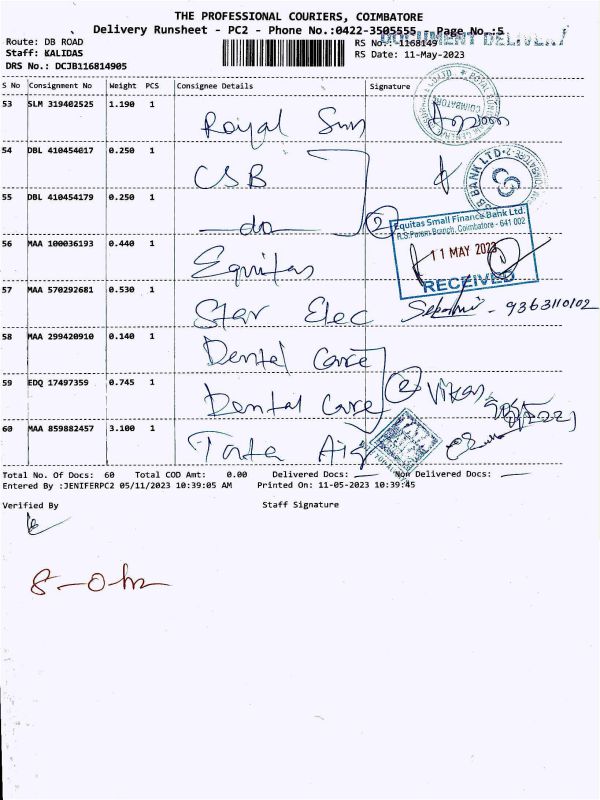 THE PROFESSIONAL COURIERS, COIMBATORE
Delivery Runsheet - PC2 - Phone No.:0422-3505555 Page No.:5
DOCUMENT DELIVERY
Route: DB ROAD RS No.: 1168149
Staff: KALIDAS RS Date: 11-May-2023
DRS No.: DCJB116814905
S No Consignment No Weight PCS Consignee Details Signature
53 SLM 319402525 1.190 1
Royal Sun
COIMBATORE
54 DBL 410454017 0.250 1
CSB
BANK LTD
55 DBL 410454179 0.250 1
do 2
Equitas Small Finance Bank Ltd.
R.S.Puram Branch, Coimbatore - 641 002
11 MAY 2023
RECEIVED
56 MAA 100036193 0.440 1
Equitas
57 MAA 570292681 0.530 1
Star Elec - 9363110102
58 MAA 299420910 0.140 1
Dental Care
59 EDQ 17497359 0.745 1
Dental Care 2 Vikas
60 MAA 859882457 3.100 1
Tata Aig
Total No. Of Docs: 60 Total COD Amt: 0.00 Delivered Docs: Non Delivered Docs:
Entered By :JENIFERPC2 05/11/2023 10:39:05 AM Printed On: 11-05-2023 10:39:45
Verified By Staff Signature